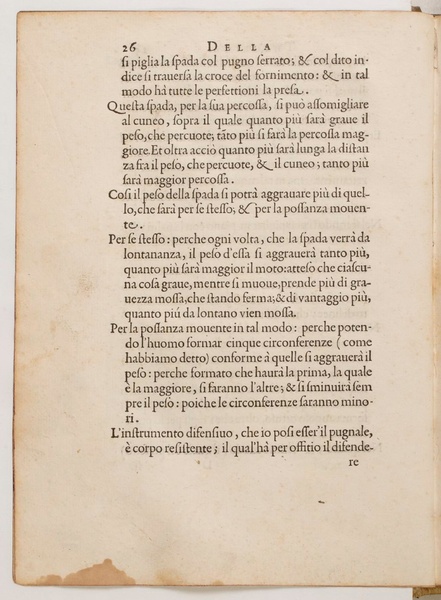 26 DELLA
si piglia la spada col pugno serrato; & col dito in-
dice si trauersa la croce del fornimento: & in tal
modo hà tutte le perfettioni la presa.
Questa spada, per la sua percossa, si può assomigliare
al cuneo, sopra il quale quanto più sarà graue il
peso, che percuote; tãto più si farà la percossa mag-
giore. Et oltra acciò quanto più sarà lunga la distan
za fra il peso, che percuote, & il cuneo; tanto più
sarà maggior percossa.
Cosi il peso della spada si potrà aggrauare più di quel-
lo, che sarà per se stesso; & per la possanza mouen-
te.
Per se stesso: perche ogni volta, che la spada verrà da
lontananza, il peso d'essa si aggrauerà tanto più,
quanto più sarà maggior il moto: atteso che ciascu-
na cosa graue, mentre si muoue, prende più di gra-
uezza mossa, che stando ferma; & di vantaggio più,
quanto piú da lontano vien mossa.
Per la possanza mouente in tal modo: perche poten-
do l'huomo formar cinque circonferenze (come
habbiamo detto) conforme à quelle si aggrauerà il
peso: perche formato che haurà la prima, la quale
è la maggiore, si faranno l'altre; & si sminuirà sem
pre il peso: poiche le circonferenze saranno mino-
ri.
L'instrumento difensiuo, che io posi esser'il pugnale,
è corpo resistente; il qual'hà per offitio il difende-
re